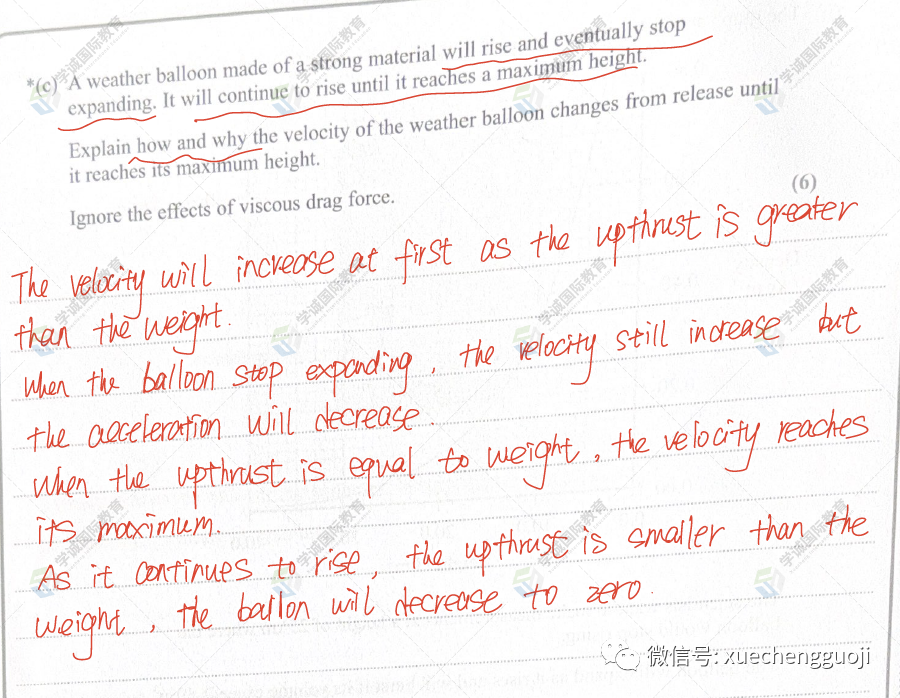 *(c) A weather balloon made of a strong material will rise and eventually stop
expanding. It will continue to rise until it reaches a maximum height.
Explain how and why the velocity of the weather balloon changes from release until
it reaches its maximum height.
(6)
Ignore the effects of viscous drag force.
The velocity will increase at first as the upthrust is greater
than the weight.
When the balloon stop expanding, the velocity still increase but
the acceleration will decrease.
When the upthrust is equal to weight, the velocity reaches
its maximum.
As it continues to rise, the upthrust is smaller than the
weight, the ballon will decrease to zero.
学诚国际教育
微信号: xuechengguoji